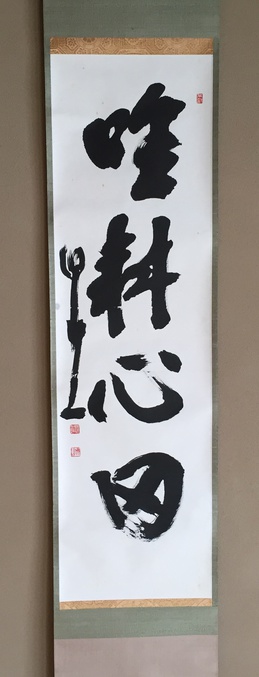 唯耕心田